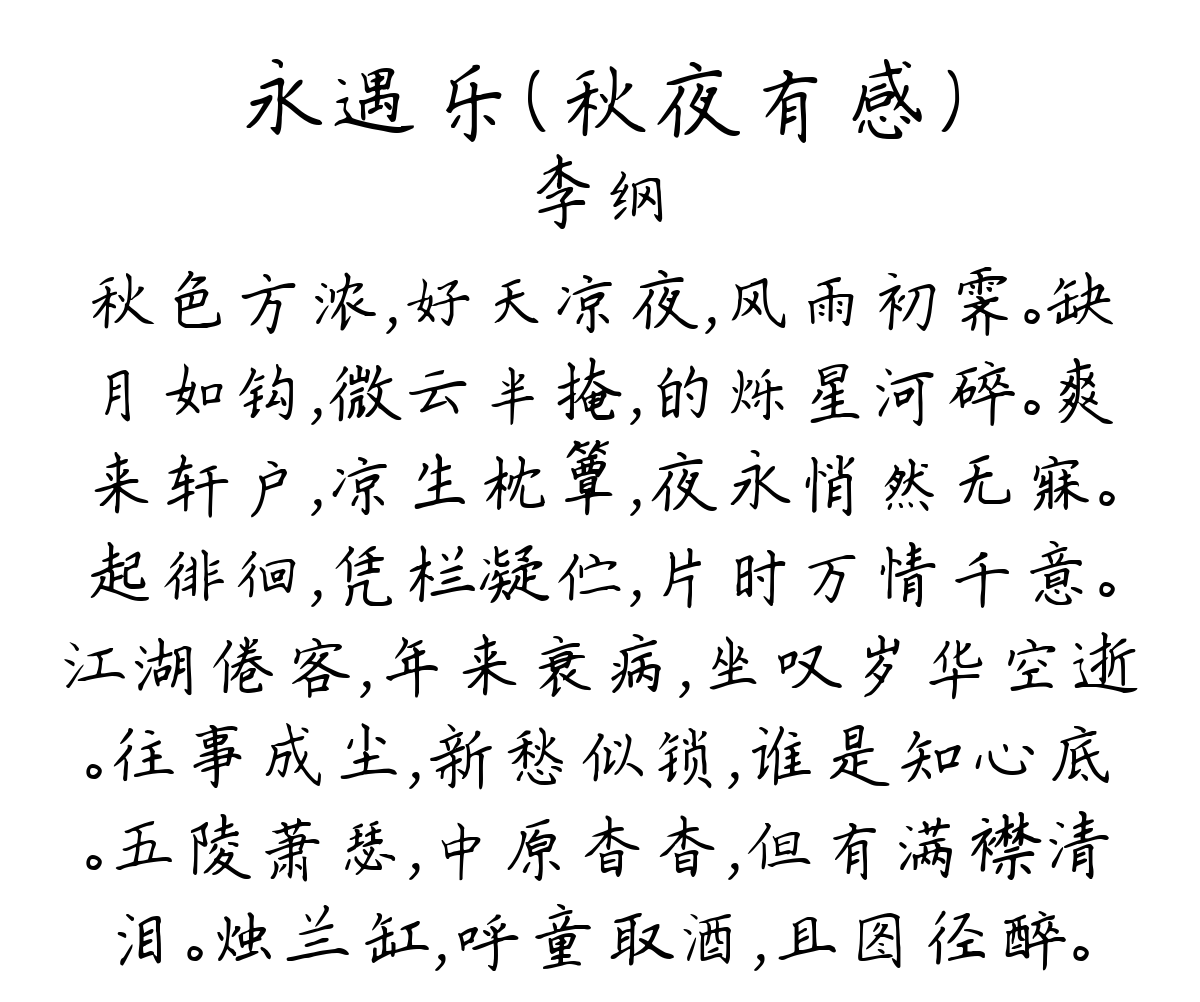 永遇乐(秋夜有感)
李纲
秋色方浓,好天凉夜,风雨初霁。缺
月如钩,微云半掩,的烁星河碎。爽
来轩户,凉生枕簟,夜永悄然无寐。
起徘徊,凭栏凝伫,片时万情千意。
江湖倦客,年来衰病,坐叹岁华空逝
。往事成尘,新愁似锁,谁是知心底
。五陵萧瑟,中原杳杳,但有满襟清
泪。烛兰缸,呼童取酒,且图径醉。